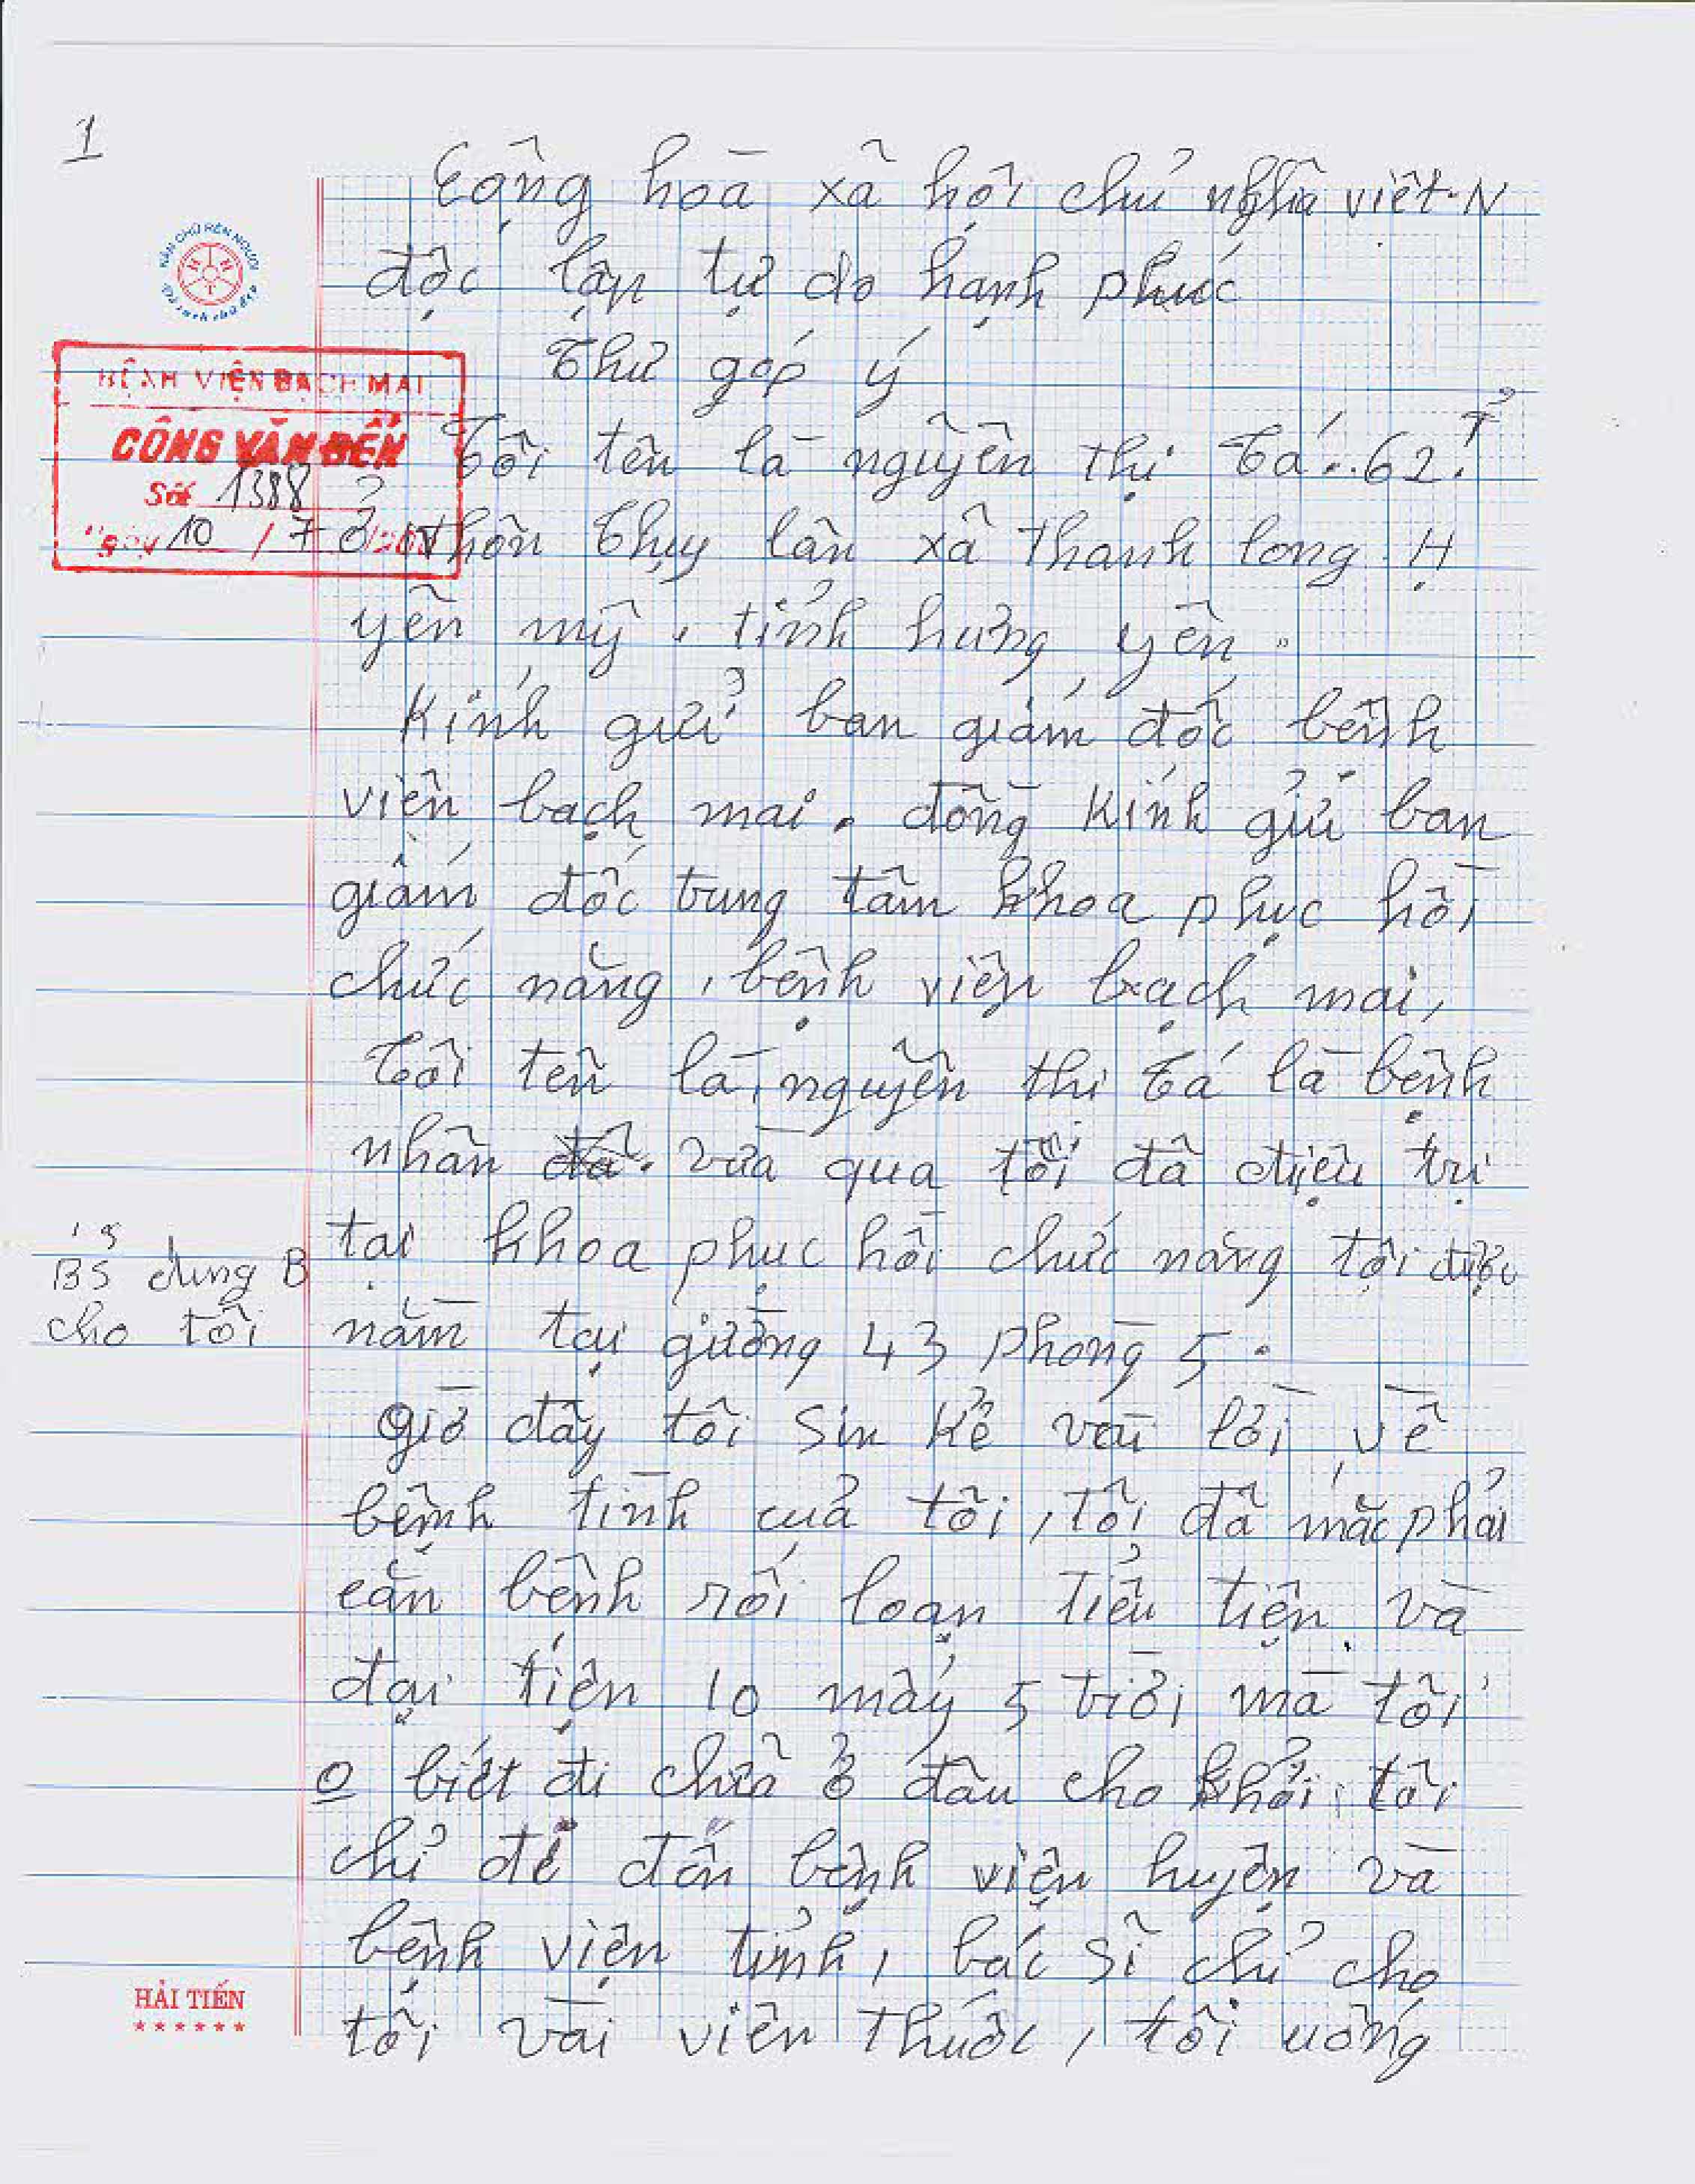 1
Cộng hòa xã hội chủ nghĩa việt.N
độc lập tự do hạnh phúc
Thư góp ý
BỆNH VIỆN BẠCH MAI
CÔNG VĂN ĐẾN
Số 1388
Ngày 10 / 7
Tôi tên là nguyễn thị Tá.. 62.T
ở thôn Thụy lân xã thanh long H
yên mỹ, tỉnh hưng yên.
Kính gửi ban giám đốc bệnh
viện bạch mai. đồng kính gửi ban
giám đốc trung tâm khoa phục hồi
chức năng, bệnh viện bạch mai,
Tôi tên là, nguyễn thị Tá là bệnh
nhân vừa qua tôi đã điều trị
tại khoa phục hồi chức năng tôi được
BS dung B
cho tôi
nằm tại giường 43 phòng 5.
giờ đây tôi sin kể vài lời về
bệnh tình của tôi, tôi đã mắc phải
căn bệnh rối loạn tiểu tiện. và
đại tiện 10 mấy 5 trời mà tôi
o biết đi chữa ở đâu cho khỏi tôi
chỉ đi đến bệnh viện huyện và
bệnh viện tỉnh, bác sĩ chỉ cho
tôi vài viên thuốc, tôi uống
HẢI TIẾN